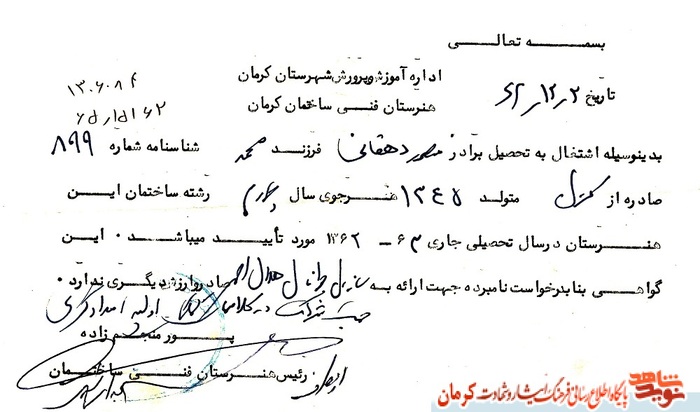 بسمه تعالی
اداره آموزش و پرورش شهرستان کرمان
هنرستان فنی ساختمان کرمان
تاریخ ۶۲/۱۲/۲
بدینوسیله اشتغال به تحصیل برادر منصور دهقانی فرزند محمد شناسنامه شماره ۸۹۹
صادره از متولد ۱۳۴۵ هنرجوی سال چهارم رشته ساختمان این
هنرستان در سال تحصیلی جاری ۶۳ - ۱۳۶۲ مورد تأیید میباشد . این
گواهی بنا بدرخواست نامبرده جهت ارائه به هلال احمر صادر و ارزش دیگری ندارد .
جهت شرکت در کلاس اولیه امدادگری
پور منجم زاده
رئیس هنرستان فنی ساختمان
نوید شاهد
پایگاه اطلاع رسانی فرهنگ ایثار و شهادت کرمان